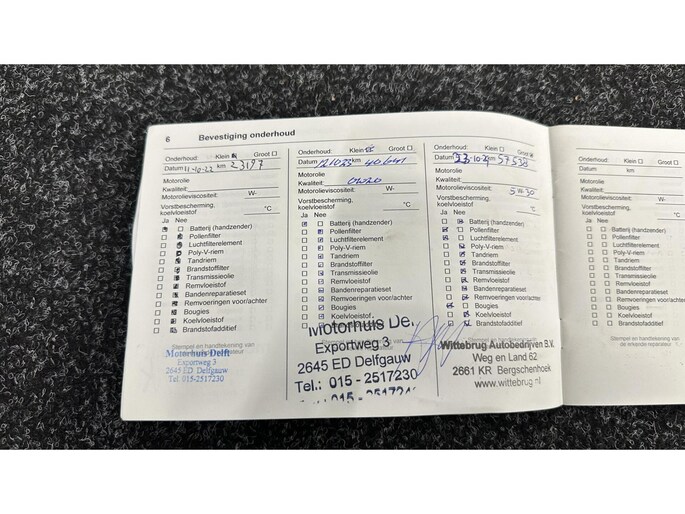 6 Bevestiging onderhoud
Onderhoud: Klein Groot
Datum 11-10-22 km 23197
Motorolie
Kwaliteit:
Motorolieviscositeit: W-
Vorstbescherming,
koelvloeistof °C
Ja Nee
Batterij (handzender)
Pollenfilter
Luchtfilterelement
Poly-V-riem
Tandriem
Brandstoffilter
Transmissieolie
Remvloeistof
Bandenreparatieset
Remvoeringen voor/achter
Bougies
Koelvloeistof
Brandstofadditief
Stempel en handtekening van
Motorhuis Delft
Exportweg 3
2645 ED Delfgauw
Tel. 015-2517230
Onderhoud: Klein Groot
Datum 121023 km
Motorolie
Kwaliteit: 0W20
Motorolieviscositeit: W-
Vorstbescherming,
koelvloeistof °C
Ja Nee
Batterij (handzender)
Pollenfilter
Luchtfilterelement
Poly-V-riem
Tandriem
Brandstoffilter
Transmissieolie
Remvloeistof
Bandenreparatieset
Remvoeringen voor/achter
Bougies
Koelvloeistof
Motorhuis De
Exportweg 3
2645 ED Delfgauw
Tel.: 015-2517230
Onderhoud: Klein Groot
Datum 23-10-24 km 57538
Motorolie
Kwaliteit:
Motorolieviscositeit: 5W-30
Vorstbescherming,
koelvloeistof °C
Ja Nee
Batterij (handzender)
Pollenfilter
Luchtfilterelement
Poly-V-riem
Tandriem
Brandstoffilter
Transmissieolie
Remvloeistof
Bandenreparatieset
Remvoeringen voor/achter
Bougies
Koelvloeistof
Brandstofadditief
Stempel en handtekening van
Wittebrug Autobedrijven B.V.
Weg en Land 62
2661 KR Bergschenhoek
www.wittebrug.nl
Onderhoud: Klein Groot
Datum km
Motorolie
Kwaliteit:
Motorolieviscositeit: W-
Vorstbescherming,
koelvloeistof °C
Ja Nee
Batterij (handzender)
Pollenfilter
Luchtfilterelement
Poly-V-riem
Tandriem
Brandstoffilter
Transmissieolie
Remvloeistof
Bandenreparatieset
Remvoeringen voor/achter
Bougies
Koelvloeistof
Brandstofadditief
Stempel en handtekening van
de erkende reparateur: